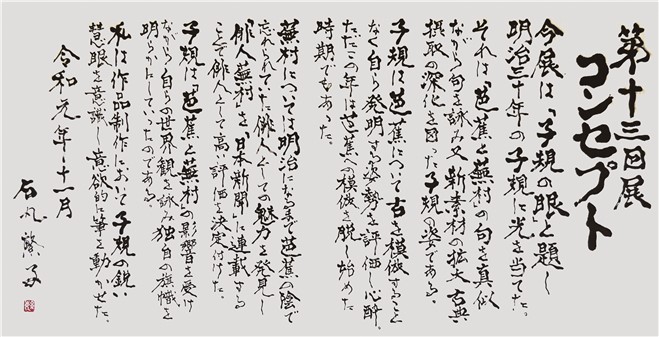 第十三回展
コンセプト
今展は「子規の眼」と題し
明治三十年の子規に光を当てた。
それは、芭蕉と蕪村の句を真似
ながら句を詠み又新素材の拡大古典
摂取の深化を図った子規の姿である。
子規は芭蕉について古き模倣することな
く自ら発明する姿勢を評価し心酔。
ただこの年は芭蕉への模倣を脱し始めた
時期でもあった。
蕪村については明治になるまで芭蕉の陰で
忘れられていた俳人としての魅力を発見し
俳人蕪村を「日本新聞」に連載する
ことで俳人として高い評価を決定付けた。
子規は芭蕉と蕪村の影響を受け
ながら自らの世界観を詠み独自の旗幟を
明らかにしていったのである。
私は作品制作において子規の鋭い
慧眼を意識し意欲的に筆を動かせた。
令和元年十一月